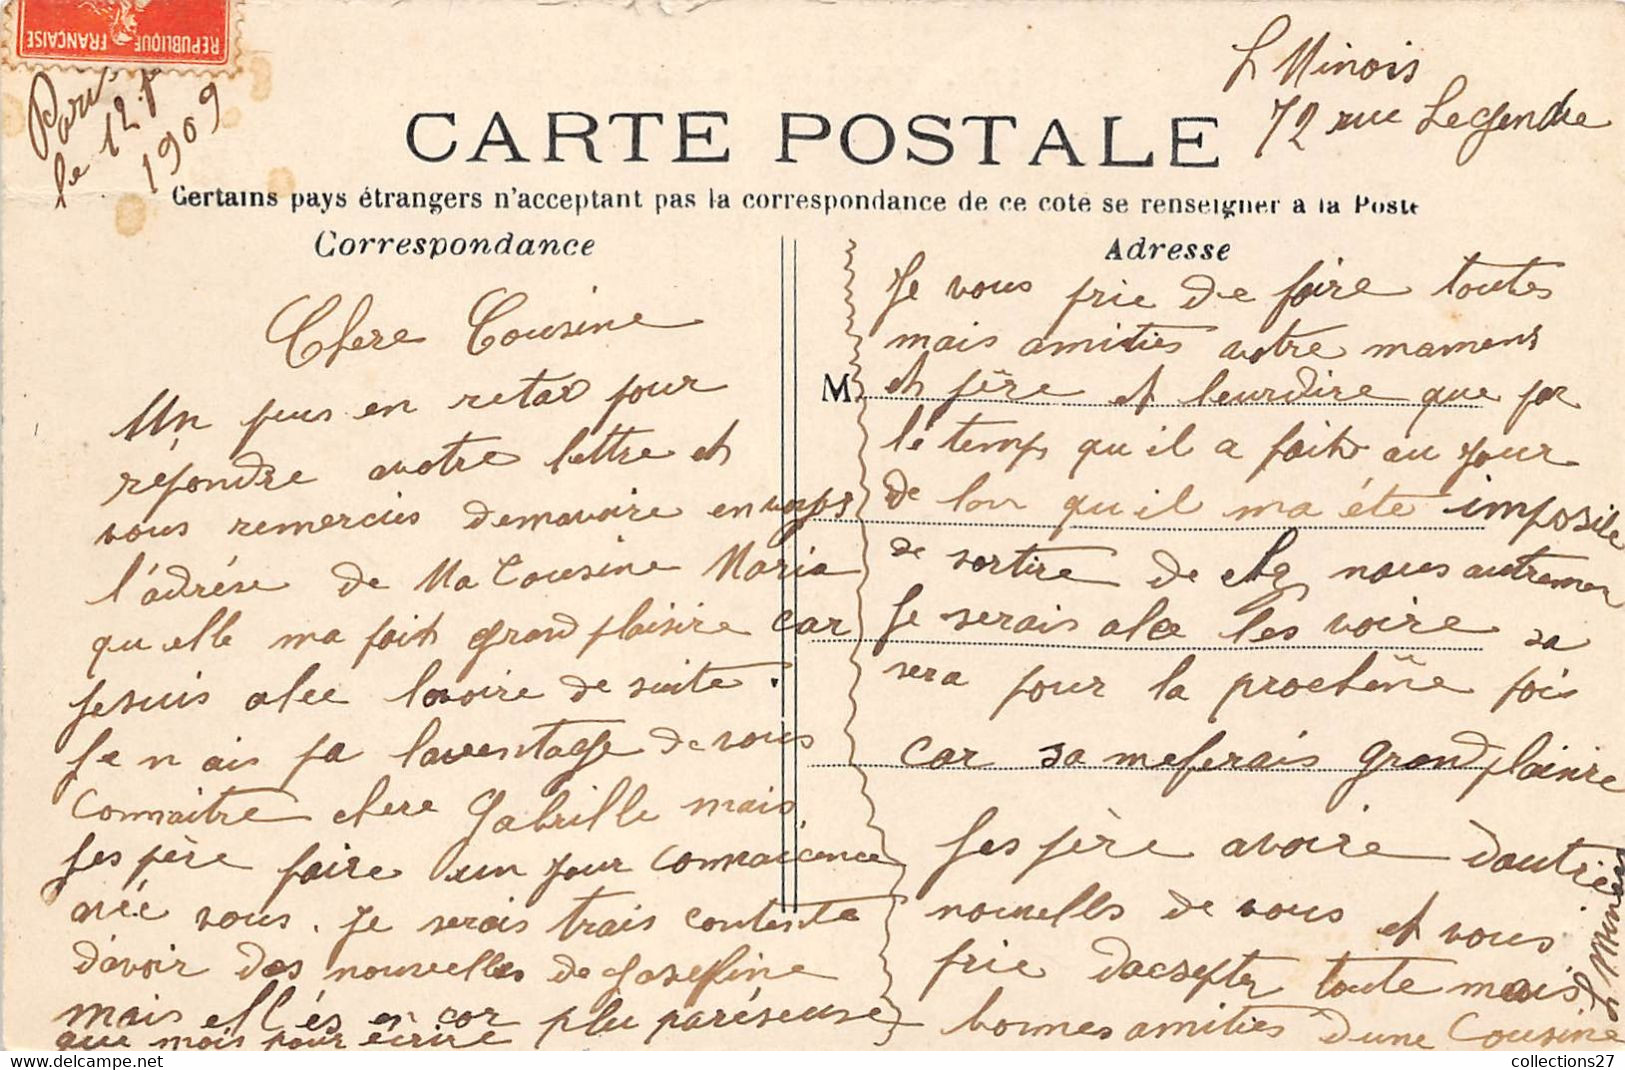 REPUBLIQUE FRANÇAISE
Paris
le 12
1909
L Minois
72 rue Legendre
CARTE POSTALE
Certains pays étrangers n'acceptant pas la correspondance de ce coté se renseigner a la Poste
Correspondance
Chere Cousine
Un peus en retar pour
répondre avotre lettre et
vous remercies demavoire envoyer
l'adrése de Ma Cousine Maria
qu elle ma fait grand plaisire car
Jesuis alee lavoire de suite.
Je n ais pa laventage devous
Connaitre chere Gabrille mais
Jespère faire un jour connaicence
avéc vous. Je serais trais contente
d'avoir des nouvelles de Josefine
mais ell és en cor plu paréseuse
que mois pour écrire
Adresse
M
Je vous prie de faire toutes
mais amities avotre mamens
et père et leurdire que par
le temps qu il a fait au jour
de lan qu il ma été imposile
de sortire de chez nous autremen
Je serais alee les voire sa
sera pour la prochêne fois
car sa meferais grand plaisire
Jespère avoire dautres
nouvells de vous et vous
prie dacsepter toute mais
bonnes amities dune Cousine
L Minois
collections27